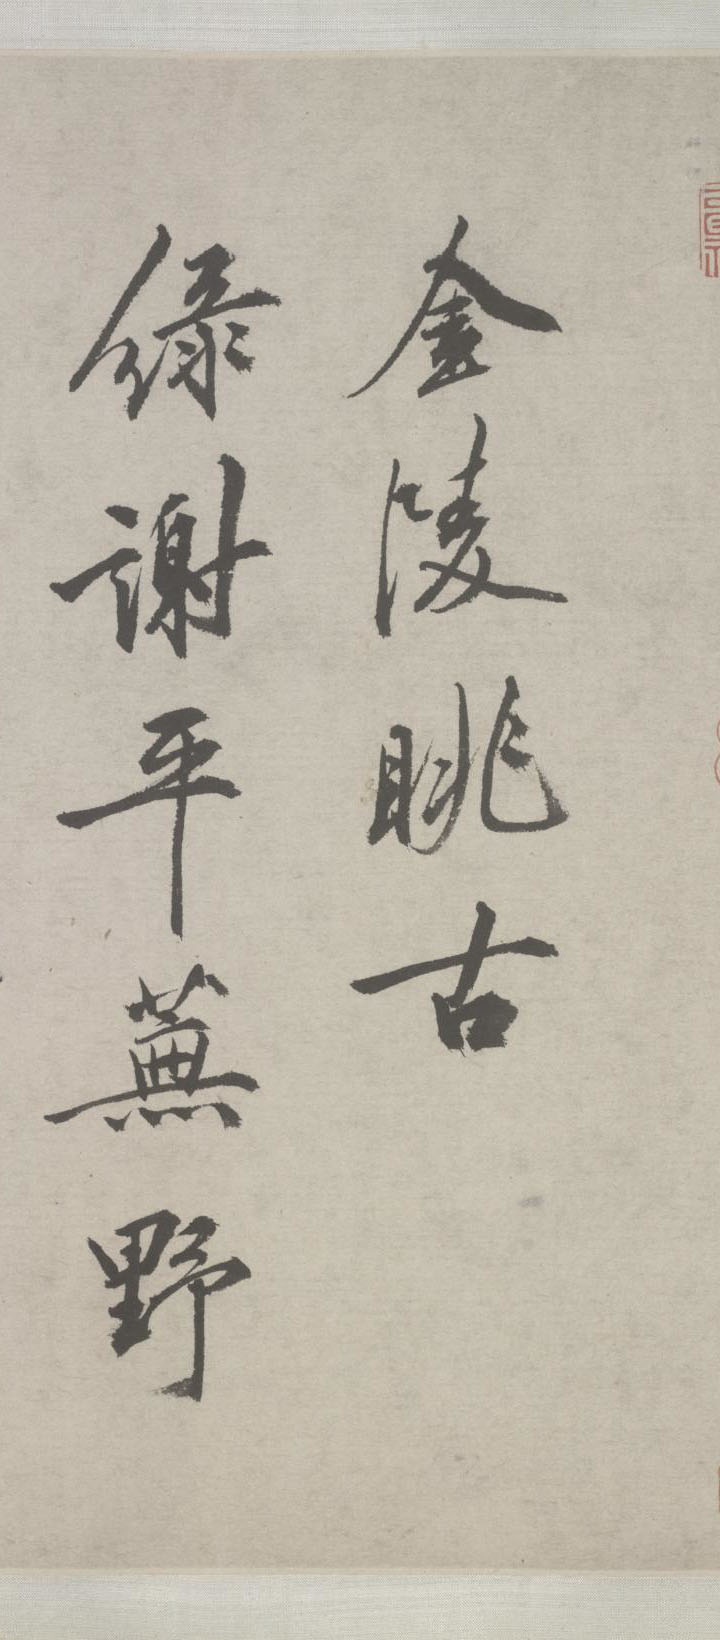 金陵眺古
綠謝平蕪野